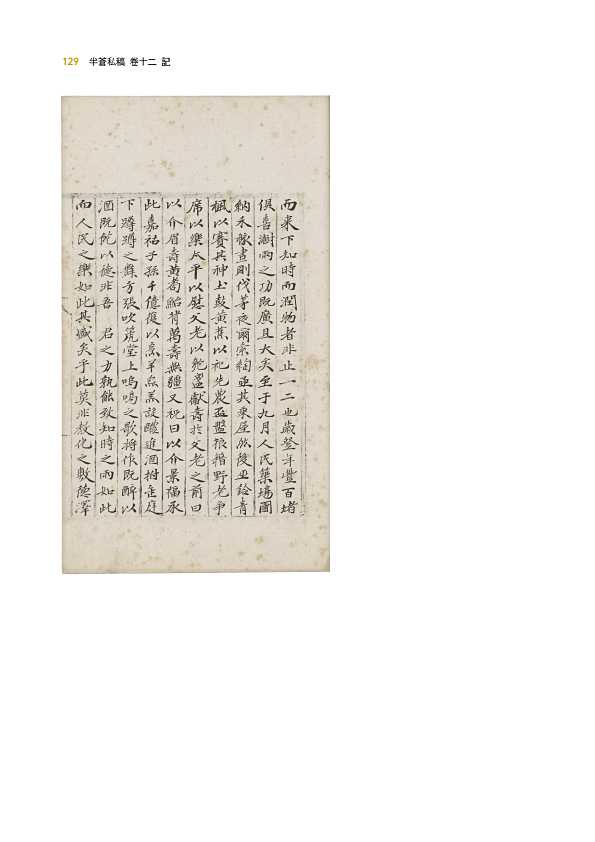 129 半蒼私稿 卷十二 記
而來下知時而潤物者非止一二也歲登年豐百堵
俱喜澍雨之功旣廣且大矣至于九月人民築場圃
納禾稼晝則伐茅夜爾索綯亟其乘屋然後
楓以賽其神土鼓黃 以祀先農盃盤狼藉野老爭
席以樂太平以慰父老以兕 獻壽於父老之前曰
以介眉壽黃耈鮐背萬壽無疆又祝曰以介景福承
此嘉祜子孫千億復以烹羊炰羔設 進酒樹 庭
下蹲蹲之舞方張吹 堂上嗚嗚之歌將作旣醉以
酒旣飽以德非吾 君之力孰能致知時之雨如此
而人民之樂如此其 矣乎此莫非敎化之敷德澤